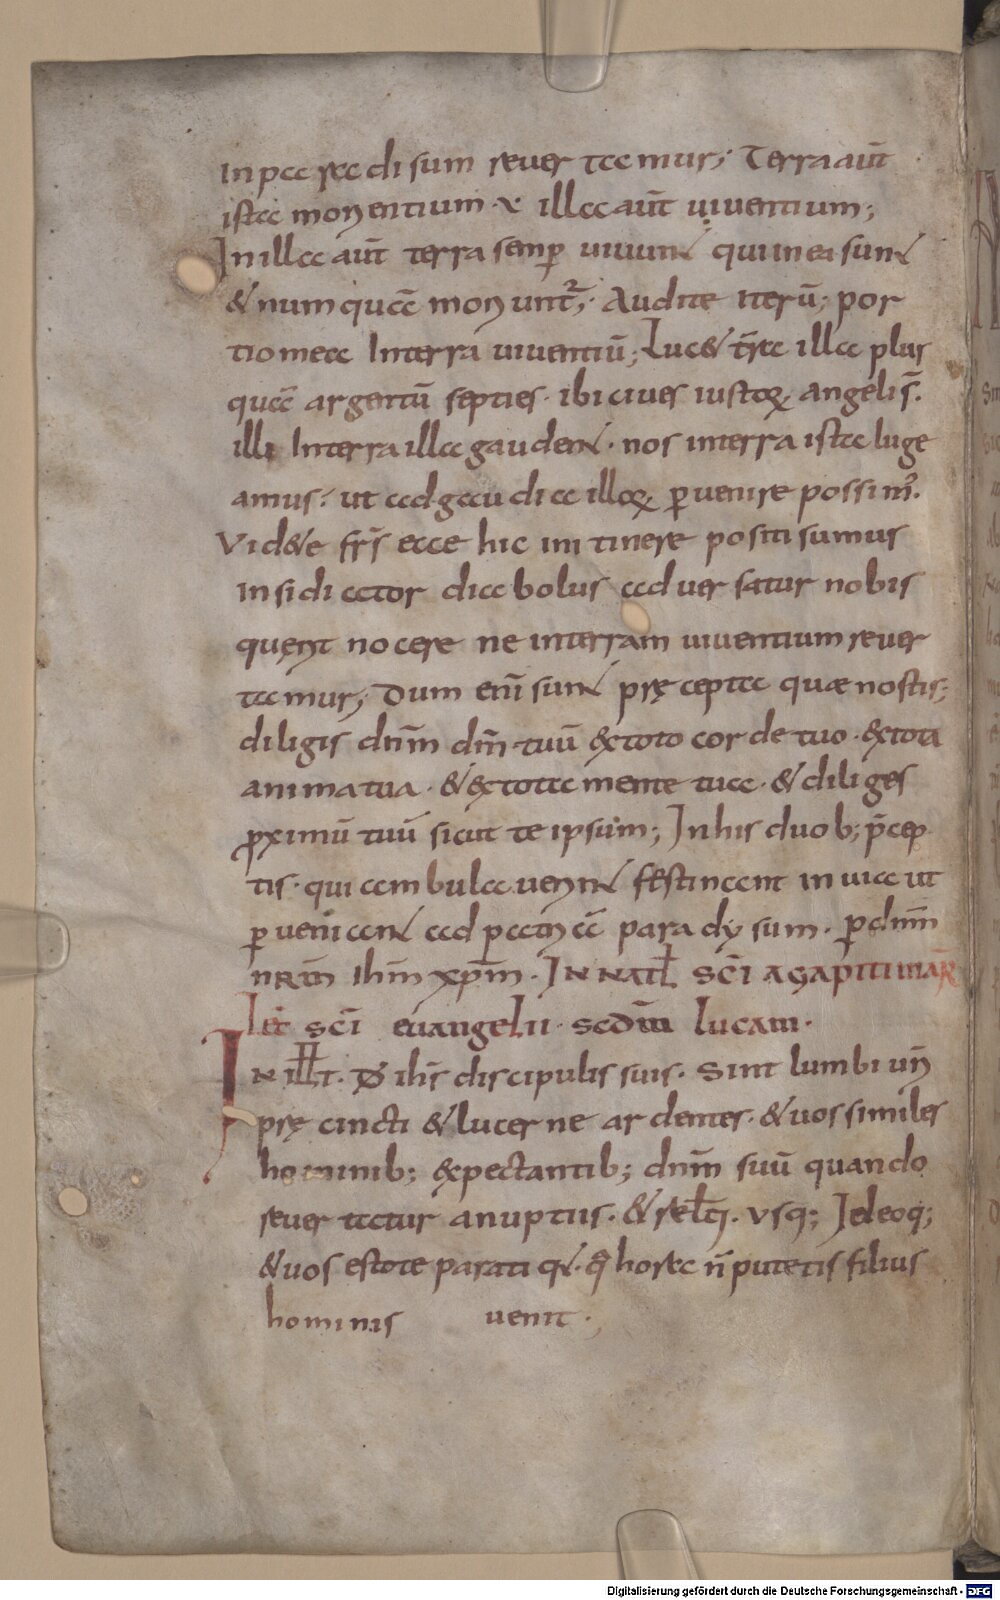 In paradisum reuertamur; Terra aut̄
ista morientium · v illa aut̄ uiuentium;
In illa aut̄ terra semꝑ uiuunt qui in ea sunt
& numquā moriunt̄; Audite iterū; por
tio mea In terra uiuentiū; Luc& t̄ra illa plus
quā argentū septies · ibi ciues iustoꝝ angelis̄.
illi In terra illa gaudent · nos in terra ista luge
amus; ut ad gaudia illoꝝ ꝑuenire possim᾿.
Vid&e fr̄s ecce hic in itinere positi sumus
insidiator diabolus aduersatur nobis
quęrit nocere ne in terram uiuentium reuer
tamur; Dum enī sunt pręcepta quæ nostis;
diligis dn̄m dm̄ tuū & ex toto corde tuo · & ex tota
anima tua · & ex tota mente tua · & diliges
ꝓximū tuū sicut te ipsum; In his duob; p̄cep
tis · qui ambulauerint festinant in uia ut
ꝑueniant ad patriā paradysum · ꝑ dn̄m
nr̄m ihm̄ xp̄m · IN NAT̄ SC̄I AGAPITI MAR̄
Lec̄ sc̄i euangelii · scd̄m lucam ·
IN ILL̄ T̄ · D̄ ihs̄ discipulis suis · Sint lumbi ur̄i
pręcincti & lucerne ardentes · & uos similes
hominib; expectantib; dn̄m suū quando
reuertatur a nuptiis · & reliq̄ · vsq; Ideoq;
& uos estote parati q · q̄ hora n̄ putetis filius
hominis uenit ·
Digitalisierung gefördert durch die Deutsche Forschungsgemeinschaft - DFG